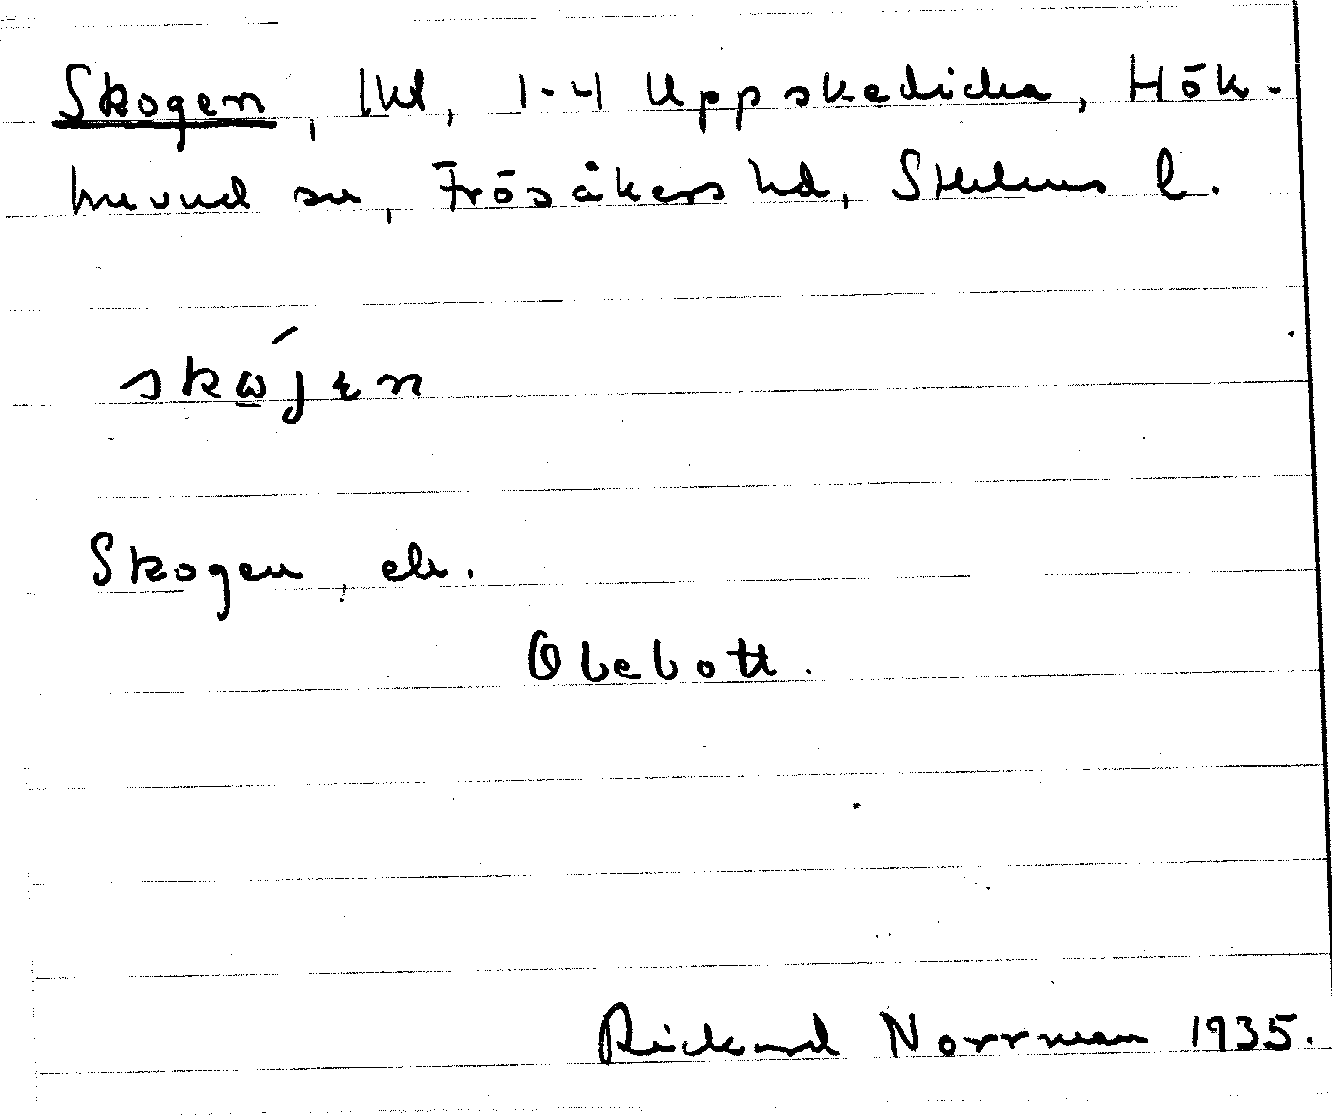 Skogen, lht, 1-4 Uppskedicka, Hök-
huvud sn, Frösåkers hd, Sthlms l.
skώ̲jen
Skogen, ek.
Obebott.
Rickard Norrman 1935.